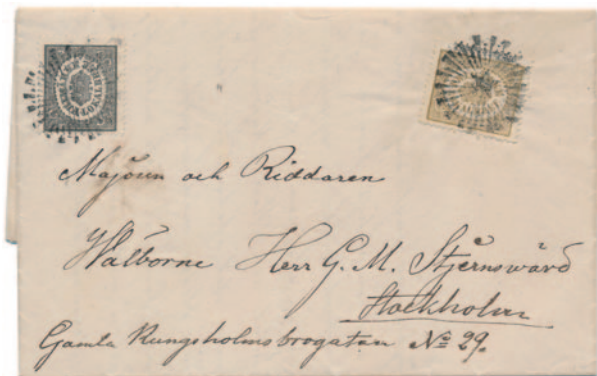 Majoren och Riddaren
Wälborne Herr G. M. Stjernswärd
Stockholm
Gamla Kungsholmsbrogatan № 29.